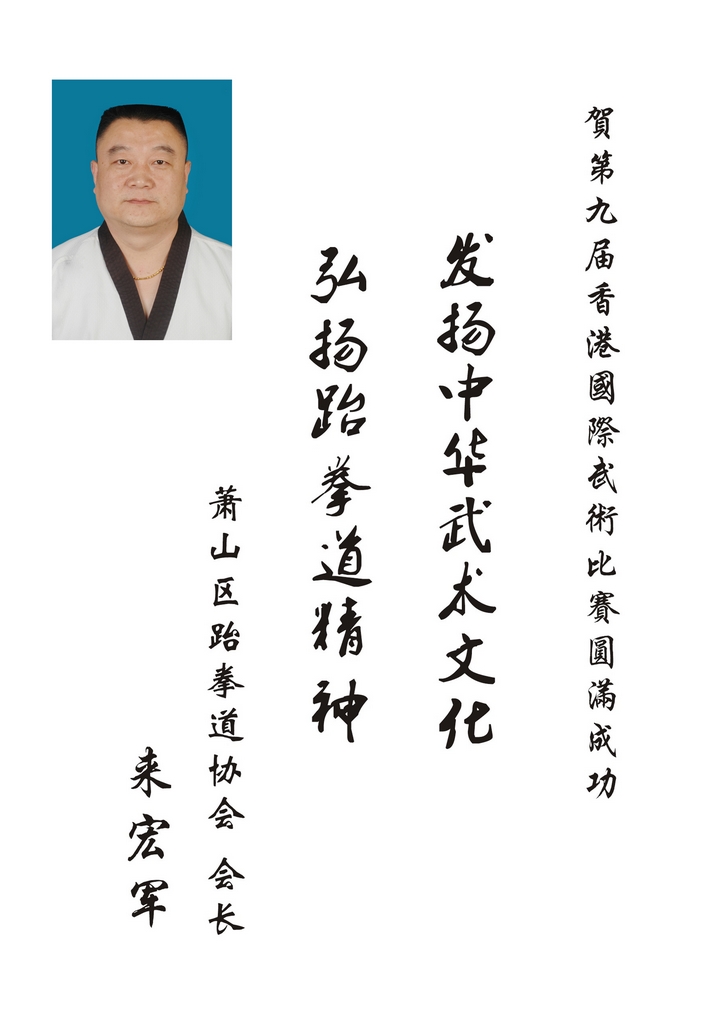 賀第九届香港國際武術比賽圓滿成功
发扬中华武术文化
弘扬跆拳道精神
萧山区跆拳道协会 会长
来宏军